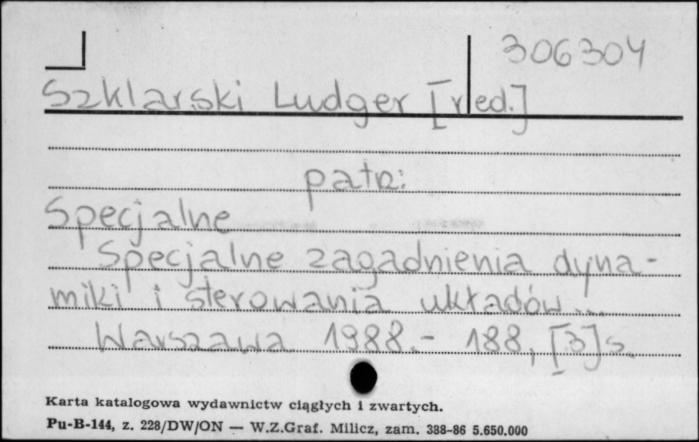 306304
Szklarski Ludger [red.]
patrz:
Specjalne
Specjalne zagadnienia dyna-
miki i sterowania układów...
Warszawa 1988.- 188, [3]s.
Karta katalogowa wydawnictw ciągłych i zwartych.
Pu-B-144, z. 228/DW/ON — W.Z.Graf. Milicz, zam. 388-86 5.650.000